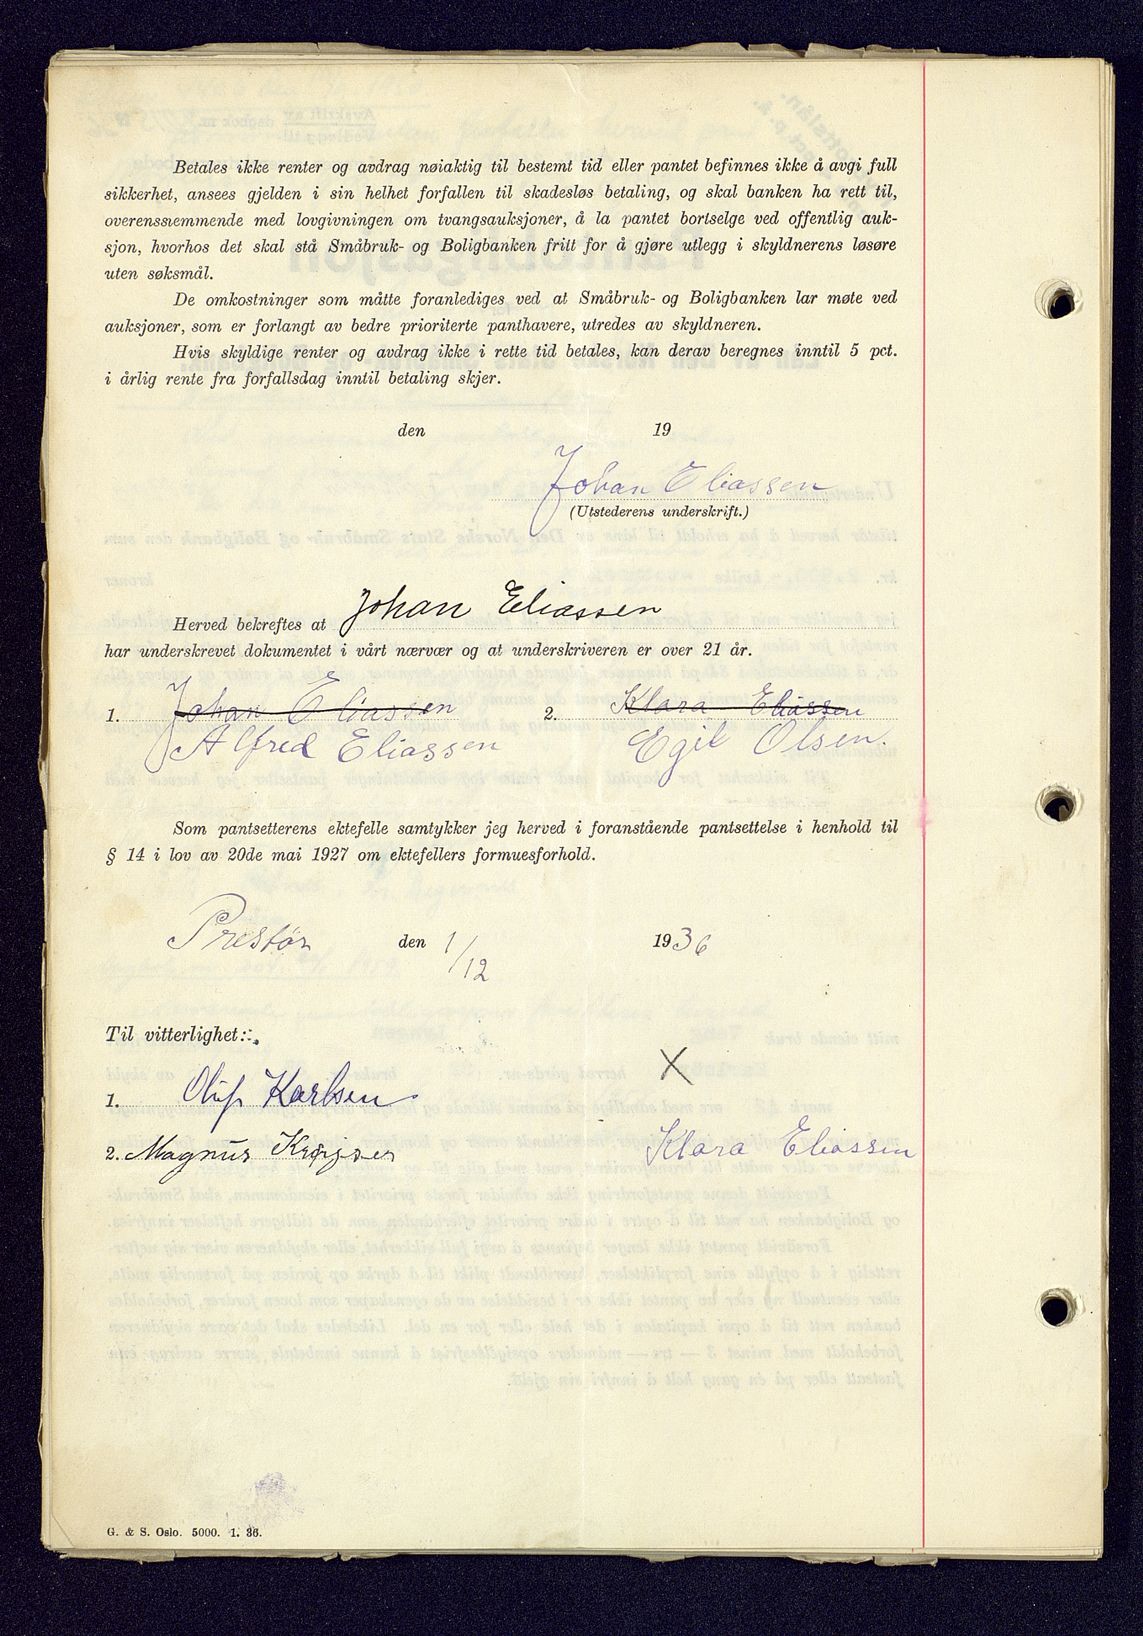 Betales ikke renter og avdrag nøiaktig til bestemt tid eller pantet befinnes ikke å avgi full
sikkerhet, ansees gjelden i sin helhet forfallen til skadesløs betaling, og skal banken ha rett til,
overensstemmende med lovgivningen om tvangsauksjoner, å la pantet bortselge ved offentlig auk-
sjon, hvorhos det skal stå Småbruk- og Boligbanken fritt for å gjøre utlegg i skyldnerens løsøre
uten søksmål.
De omkostninger som måtte foranlediges ved at Småbruk- og Boligbanken lar møte ved
auksjoner, som er forlangt av bedre prioriterte panthavere, utredes av skyldneren.
Hvis skyldige renter og avdrag ikke i rette tid betales, kan derav beregnes inntil 5 pct.
i årlig rente fra forfallsdag inntil betaling skjer.
den 19
Johan Eliassen
(Utstederens underskrift.)
Herved bekreftes at Johan Eliassen
har underskrevet dokumentet i vårt nærvær og at underskriveren er over 21 år.
1. Johan Eliassen 2. Klara Eliassen
Alfred Eliassen Egil Olsen.
Som pantsetterens ektefelle samtykker jeg herved i foranstående pantsettelse i henhold til
§ 14 i lov av 20de mai 1927 om ektefellers formuesforhold.
Prestør den 1/12 1936
Til vitterlighet:
X
1. Oluf Karlsen
2. Magnus Klara Eliassen
G. & S. Oslo. 5000. 1. 36.